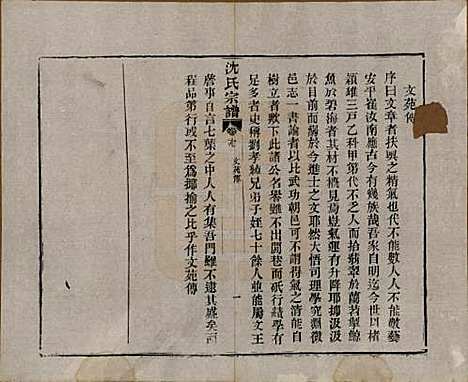 文苑傳
序曰文章者扶輿之精氣也代不能數人人不能數藝
安平崔汝南應古今有幾族哉吾家自明迄今世以楮
穎雄三戸乙科甲第代不乏人而拾翡翠於蘭苕掣鯨
魚於碧海者其材不擔見焉豈氣運有升降耶據汲汲
於目前而病於今進士之文耶然大悟司理學究淵微
邑志一書論者以比武功朝邑可不謂得氣之清能自
樹立者歟下此諸公名譽雖不出閭巷而砥行績學有
足多者史稱劉孝綽兄弟子姪七十餘人並能屬文王
筠事自言七葉之中人人有集吾門雖不逮其盛矣而
程品第行或不至爲揶揄之比乎作文苑傳
沈氏宗譜
卷
文苑傳
一